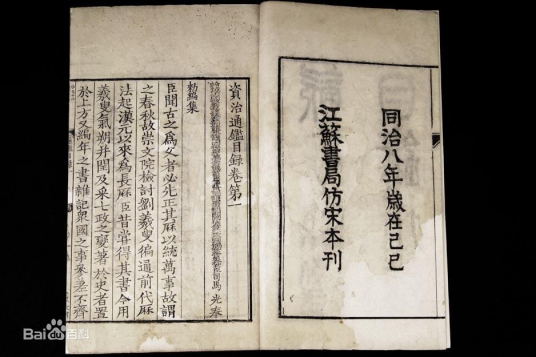 同治八年歲在己巳
江蘇書局仿宋本刊
資治通鑑目録卷第一
司馬 光奉
勅編集
臣聞古之爲文者必先正其厤以統萬事故謂
之春秋故崇文院檢討劉羲叟徧通前代厤
法起漢元以來爲長厤臣昔嘗得其書今用
羲叟氣朔并閏及采七政之變著於史者置
於上方又編年之書雜記衆國之事參差不齊
Baidu百科